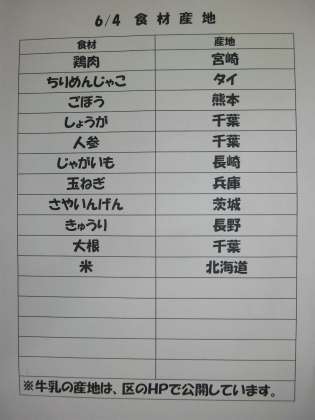 6/4 食材産地
食材 産地
鶏肉 宮崎
ちりめんじゃこ タイ
ごぼう 熊本
しょうが 千葉
人参 千葉
じゃがいも 長崎
玉ねぎ 兵庫
さやいんげん 茨城
きゅうり 長野
大根 千葉
米 北海道
※牛乳の産地は、区のHPで公開しています。